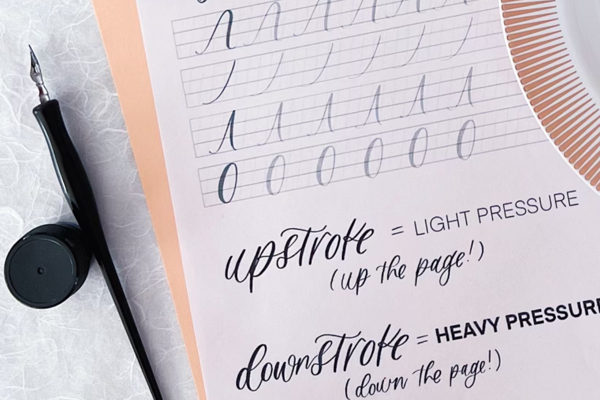 upstroke = LIGHT PRESSURE
(up the page!)
downstroke = HEAVY PRESSURE
(down the page!)